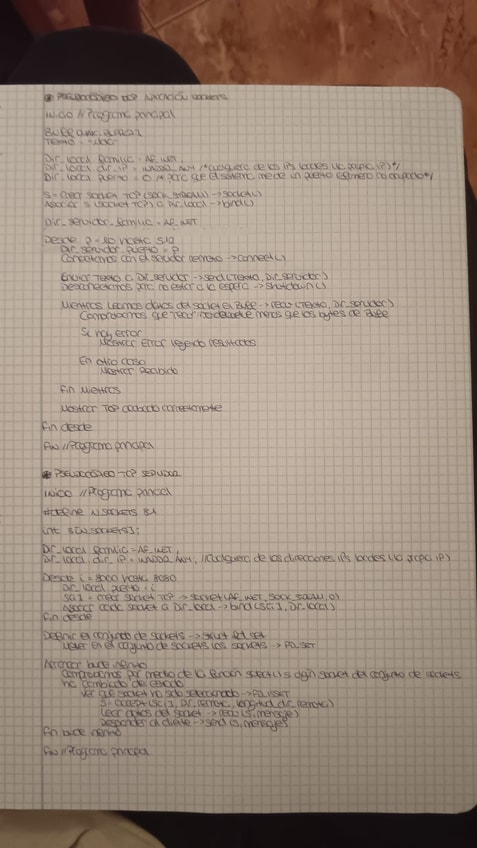 * PSEUDOCÓDIGO TCP SOCKETS
Inicio // Programa principal
Buffer
Texto =
Dir_local familia = AF_INET
Dir_local dir_IP = INADDR_ANY /*Cualquiera de las IPs locales (la propia IP)*/
Dir_local puerto = 0 /* para que el sistema me de un puerto efímero no ocupado*/
S = crear socket TCP (SOCK_STREAM) → socket()
Asociar S (socket TCP) a Dir_local → bind()
Dir_servidor_familia = AF_INET
Desde P = hasta
Dir_servidor_puerto = P
Conectamos con el servidor remoto → connect()
Enviar Texto a Dir_servidor → send(Texto, Dir_servidor)
Desconectamos para no estar a la espera → shutdown()
Mientras leamos datos del socket en Buffer → recv(Texto, Dir_servidor)
Comprobamos que "recv" no devuelve menos que los bytes de Buffer
Si hay error
Mostrar Error leyendo resultados
En otro caso
Mostrar Recibido
Fin Mientras
Mostrar TCP acabado correctamente
Fin desde
Fin // Programa principal
* PSEUDOCÓDIGO TCP SERVIDOR
Inicio // Programa principal
#define N_SOCKETS 81
int S[N_SOCKETS];
Dir_local familia = AF_INET,
Dir_local dir_IP = INADDR_ANY, //Cualquiera de las direcciones IPs locales (la propia IP)
Desde i = 8000 hasta 8080
Dir_local puerto = i
S[i] = crear socket TCP → socket(AF_INET, SOCK_STREAM, 0)
Asociar cada socket a Dir_local → bind(S[i], Dir_local)
Fin desde
Definir el conjunto de sockets → struct fd_set
Meter en el conjunto de sockets los sockets → FD_SET
Arrancar bucle infinito
Comprobamos por medio de la función select() si algún socket del conjunto de sockets
ha cambiado de estado
Ver que socket ha sido seleccionado → FD_ISSET
S = accept(S[i], Dir_remota, longitud_dir_remota)
Leer datos del socket → recv(S, mensaje)
Responder al cliente → send(S, mensaje)
Fin bucle infinito
Fin // Programa principal